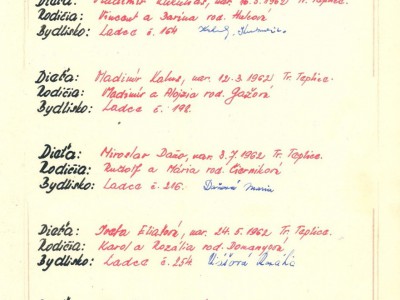 Dieťa: Vladimír nar. 16.3.1962 Tr. Teplice.
Rodičia: Vincent a Darina rod.
Bydlisko: Ladce č. 164
Dieťa: Vladimír Kalus, nar. 12.3.1962 Tr. Teplice.
Rodičia: Vladimír a Alojzia rod. Gažová
Bydlisko: Ladce č. 198.
Dieťa: Miroslav Daňo, nar. 3.7.1962 Tr. Teplice.
Rodičia: Rudolf a Mária rod. Čierniková
Bydlisko: Ladce č. 216. Daňová Maria
Dieťa: Iveta Eliašová, nar. 24.5.1962 Tr. Teplice.
Rodičia: Karol a Rozália rod. Domanyová
Bydlisko: Ladce č. 254.